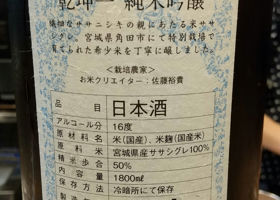 乾坤一 純米吟醸
ササニシキの親にあたる米ササ
シグレ。宮城県角田市にて特別栽培で
育てられた希少米を丁寧に醸しました。
<栽培農家>
お米クリエイター：佐藤裕貴
品目 日本酒
アルコール分 16度
原材料名 米(国産)、米麹(国産米)
原料米 宮城県産ササシグレ100%
精米歩合 50%
内容量 1800㎖
保存方法 冷暗所にて保存